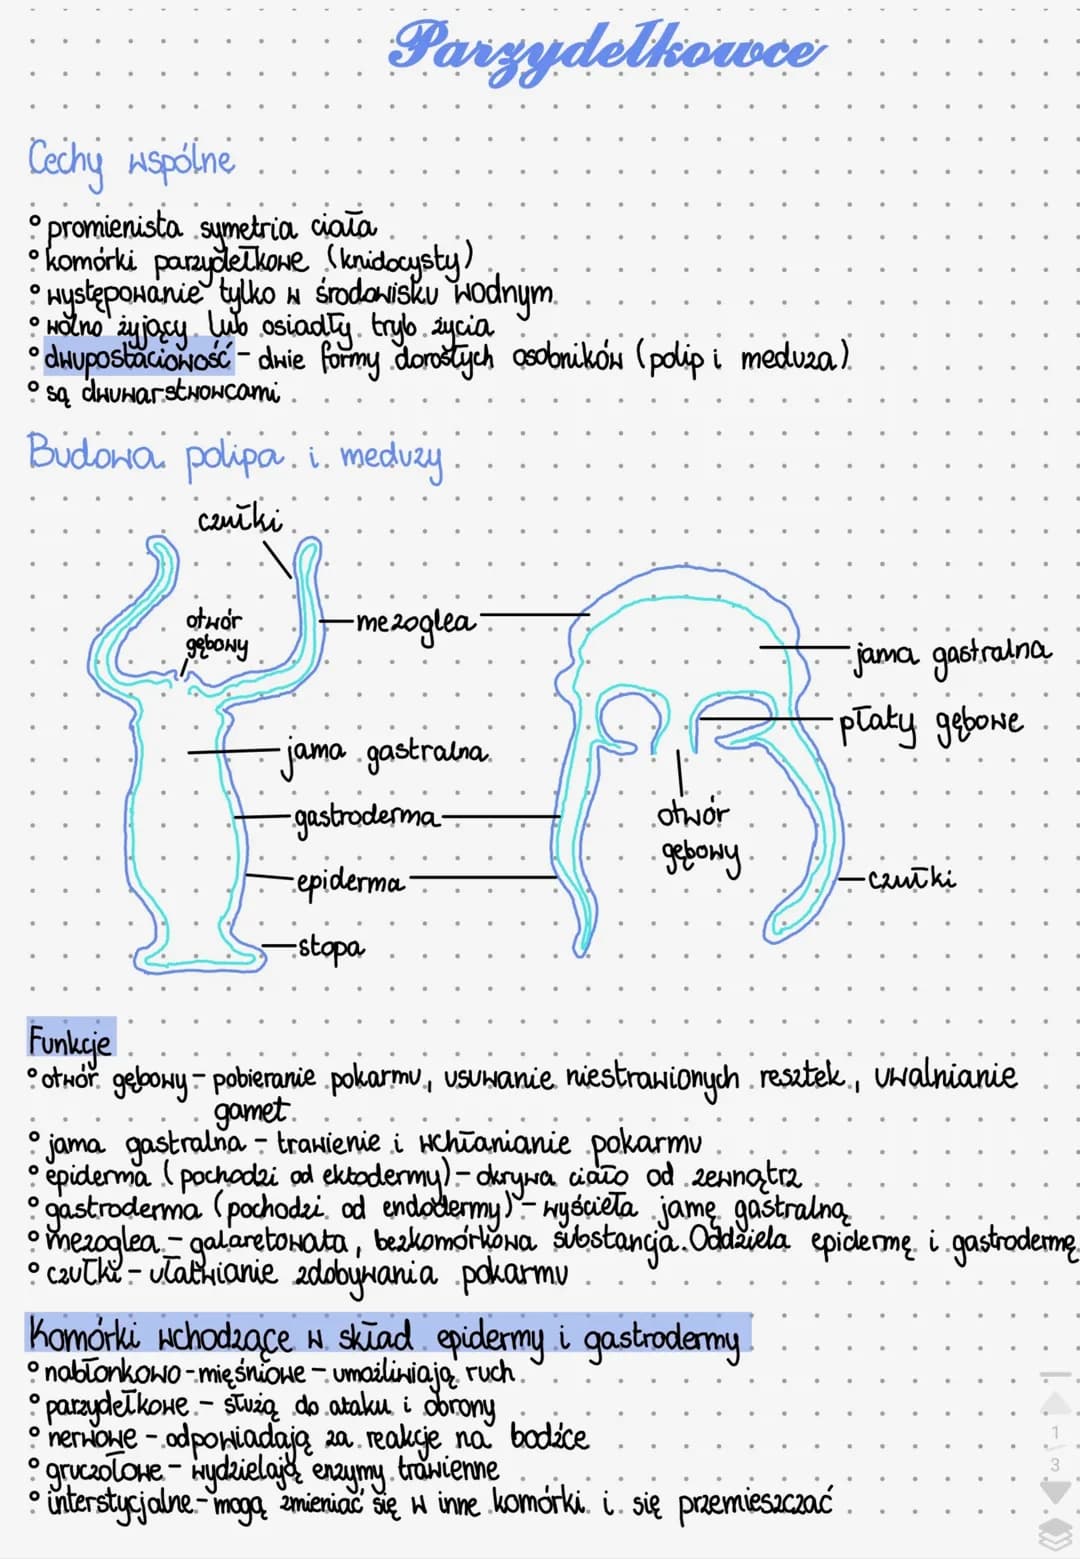 Parzydełkowce
Cechy wspólne
° promienista symetria ciała
° komórki parzydełkowe (knidocysty)
° występowanie tylko w środowisku wodnym
° wolno żyjący lub osiadły tryb życia
° dwupostaciowość - dwie formy dorosłych osobników (polip i meduza)
° są dwuwarstwowcami
Budowa polipa i meduzy
czułki
otwór
gębowy
mezoglea
jama gastralna
płaty gębowe
jama gastralna
gastroderma
otwór
gębowy
epiderma
czułki
stopa
Funkcje
° otwór gębowy - pobieranie pokarmu, usuwanie niestrawionych resztek, uwalnianie
gamet
° jama gastralna - trawienie i wchłanianie pokarmu
° epiderma (pochodzi od ektodermy) - okrywa ciało od zewnątrz
° gastroderma (pochodzi od endodermy) - wyścieła jamę gastralną
° mezoglea - galaretowata, bezkomórkowa substancja. Oddziela epidermę i gastrodermę
° czułki - ułatwianie zdobywania pokarmu
Komórki wchodzące w skład epidermy i gastrodermy
° nabłonkowo-mięśniowe - umożliwiają ruch
° parzydełkowe - służą do ataku i obrony
° nerwowe - odpowiadają za reakcje na bodźce
° gruczołowe - wydzielają enzymy trawienne
° interstycjalne - mogą zmieniać się w inne komórki i się przemieszczać
1
3